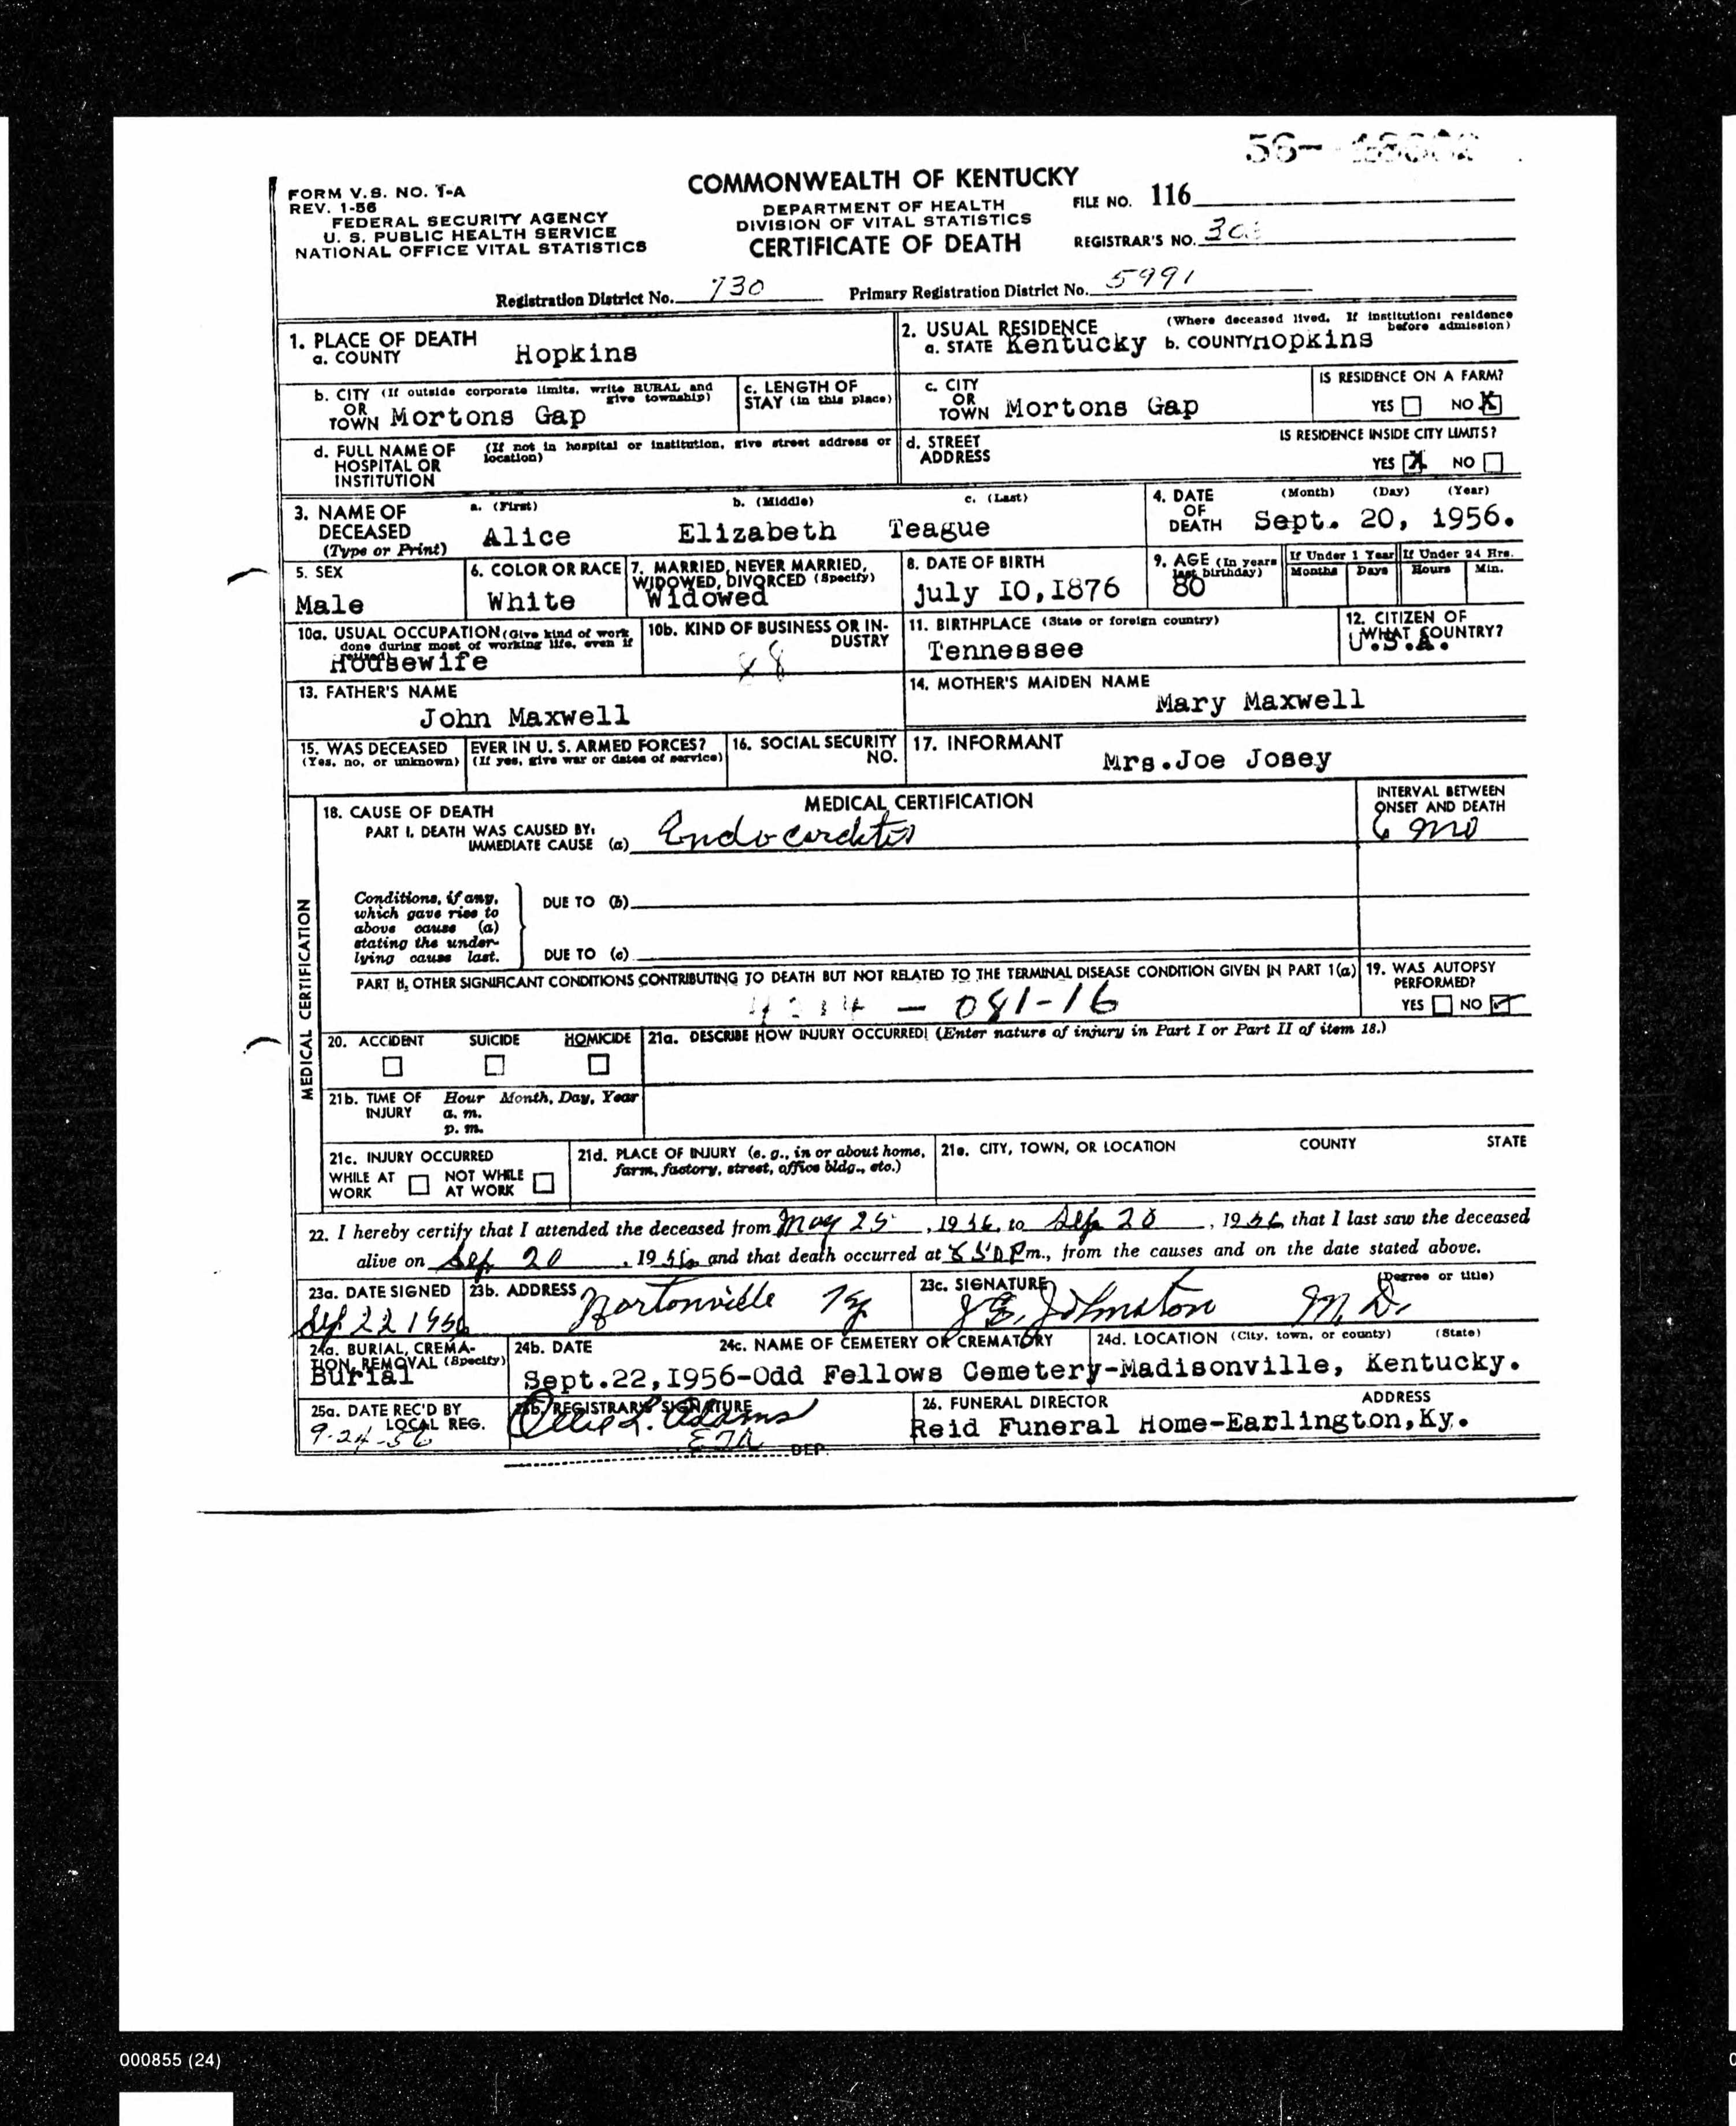 56-
FORM V.S. NO. 1-A
REV. 1-56
FEDERAL SECURITY AGENCY
U. S. PUBLIC HEALTH SERVICE
NATIONAL OFFICE VITAL STATISTICS
COMMONWEALTH OF KENTUCKY
DEPARTMENT OF HEALTH
DIVISION OF VITAL STATISTICS
CERTIFICATE OF DEATH
FILE NO. 116
REGISTRAR'S NO.
Registration District No. 730 Primary Registration District No. 5991
1. PLACE OF DEATH
a. COUNTY Hopkins
2. USUAL RESIDENCE (Where deceased lived. If institution: residence before admission)
a. STATE Kentucky b. COUNTY Hopkins
b. CITY (If outside corporate limits, write RURAL and give township)
OR
TOWN Mortons Gap
c. LENGTH OF STAY (in this place)
c. CITY
OR
TOWN Mortons Gap
IS RESIDENCE ON A FARM?
YES NO X
d. FULL NAME OF HOSPITAL OR INSTITUTION (If not in hospital or institution, give street address or location)
d. STREET ADDRESS
IS RESIDENCE INSIDE CITY LIMITS?
YES X NO
3. NAME OF DECEASED (Type or Print)
a. (First) b. (Middle) c. (Last)
Alice Elizabeth Teague
4. DATE OF DEATH (Month) (Day) (Year)
Sept. 20, 1956.
5. SEX
Male
6. COLOR OR RACE
White
7. MARRIED, NEVER MARRIED, WIDOWED, DIVORCED (Specify)
Widowed
8. DATE OF BIRTH
july 10,1876
9. AGE (In years last birthday)
80
If Under 1 Year If Under 24 Hrs.
Months Days Hours Min.
10a. USUAL OCCUPATION (Give kind of work done during most of working life, even if retired)
Housewife
10b. KIND OF BUSINESS OR INDUSTRY
11. BIRTHPLACE (State or foreign country)
Tennessee
12. CITIZEN OF WHAT COUNTRY?
U.S.A.
13. FATHER'S NAME
John Maxwell
14. MOTHER'S MAIDEN NAME
Mary Maxwell
15. WAS DECEASED EVER IN U. S. ARMED FORCES?
(Yes, no, or unknown) (If yes, give war or dates of service)
16. SOCIAL SECURITY NO.
17. INFORMANT
Mrs.Joe Josey
MEDICAL CERTIFICATION
18. CAUSE OF DEATH
MEDICAL CERTIFICATION
INTERVAL BETWEEN ONSET AND DEATH
PART I. DEATH WAS CAUSED BY:
IMMEDIATE CAUSE (a) Endocarditis 6 mo
Conditions, if any, which gave rise to above cause (a) stating the underlying cause last.
DUE TO (b)
DUE TO (c)
PART II. OTHER SIGNIFICANT CONDITIONS CONTRIBUTING TO DEATH BUT NOT RELATED TO THE TERMINAL DISEASE CONDITION GIVEN IN PART 1(a)
- 081-16
19. WAS AUTOPSY PERFORMED?
YES NO
20. ACCIDENT SUICIDE HOMICIDE
21a. DESCRIBE HOW INJURY OCCURRED! (Enter nature of injury in Part I or Part II of item 18.)
21b. TIME OF INJURY Hour Month, Day, Year
a. m.
p. m.
21c. INJURY OCCURRED
WHILE AT WORK NOT WHILE AT WORK
21d. PLACE OF INJURY (e. g., in or about home, farm, factory, street, office bldg., etc.)
21e. CITY, TOWN, OR LOCATION COUNTY STATE
22. I hereby certify that I attended the deceased from May 25, 1956, to Sep 20, 1956 that I last saw the deceased
alive on Sep 20, 1956 and that death occurred at 8 50 P m., from the causes and on the date stated above.
23a. DATE SIGNED
Sep 22 1956
23b. ADDRESS
Nortonville Ky
23c. SIGNATURE (Degree or title)
Johnston M.D.
24a. BURIAL, CREMATION, REMOVAL (Specify)
Burial
24b. DATE 24c. NAME OF CEMETERY OR CREMATORY 24d. LOCATION (City, town, or county) (State)
Sept.22,1956-Odd Fellows Cemetery-Madisonville, Kentucky.
25a. DATE REC'D BY LOCAL REG.
9-24-56
25b. REGISTRAR'S SIGNATURE
Ollie L. Adams
DEP.
26. FUNERAL DIRECTOR ADDRESS
Reid Funeral Home-Earlington,Ky.
000855 (24)